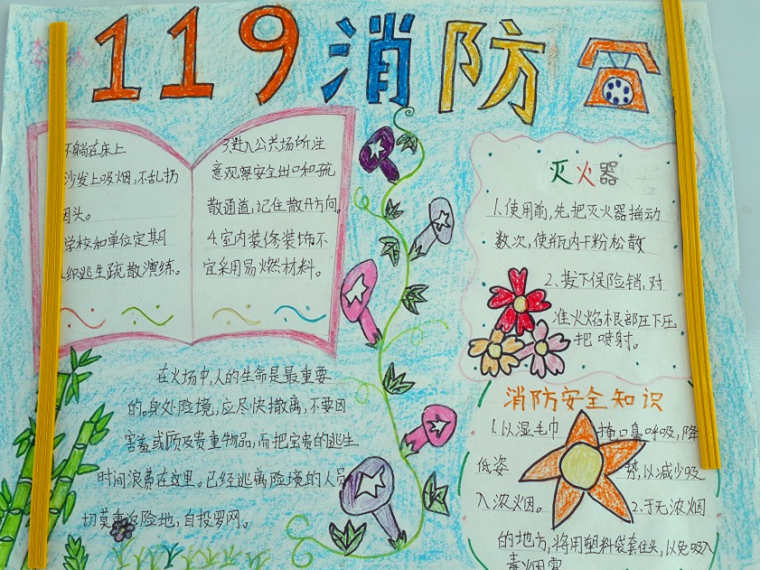 119消防
不躺在床上
沙发上吸烟,不乱扔
烟头。
学校和单位定期
组织逃生疏散演练。
3.进入公共场所注
意观察安全出口和疏
散通道,记住撤方向。
4.室内装修装饰不
宜采用易燃材料。
在火场中,人的生命是最重要
的。身处险境,应尽快撤离,不要因
害羞或顾及贵重物品,而把宝贵的逃生
时间浪费在这里。已经逃离险境的人员
切莫重返险地,自投罗网。
灭火器
1.使用前,先把灭火器摇动
数次,使瓶内干粉松散
2.拔下保险销,对
准火焰根部压下压
把喷射。
消防安全知识
1.以湿毛巾掩口鼻呼吸,降
低姿势,以减少吸
入浓烟。2.于无浓烟
的地方,将用塑料袋套住头,以免吸入
毒烟